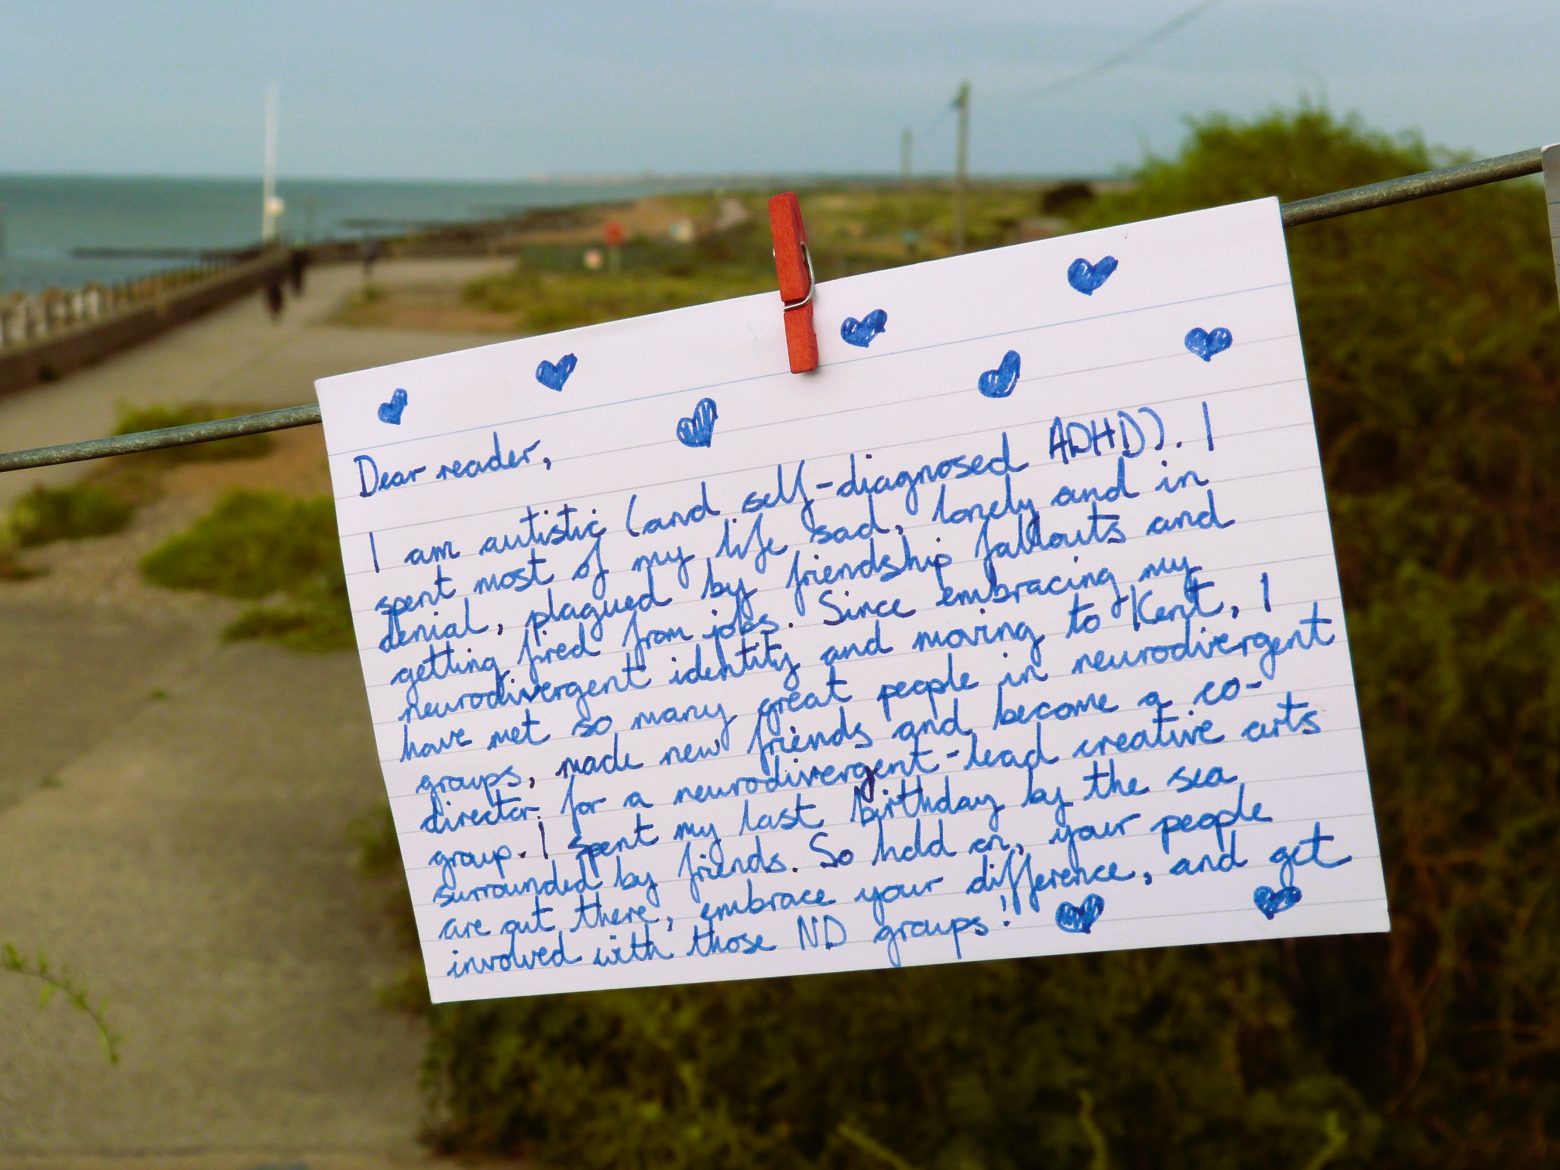 Dear reader,
I am autistic (and self-diagnosed ADHD). I
spent most of my life sad, lonely and in
denial, plagued by friendship fallouts and
getting fired from jobs. Since embracing my
neurodivergent identity and moving to Kent, I
have met so many great people in neurodivergent
groups, made new friends and become a co-
director for a neurodivergent-lead creative arts
group. I spent my last birthday by the sea
surrounded by friends. So hold on, your people
are out there, embrace your difference, and get
involved with those ND groups!